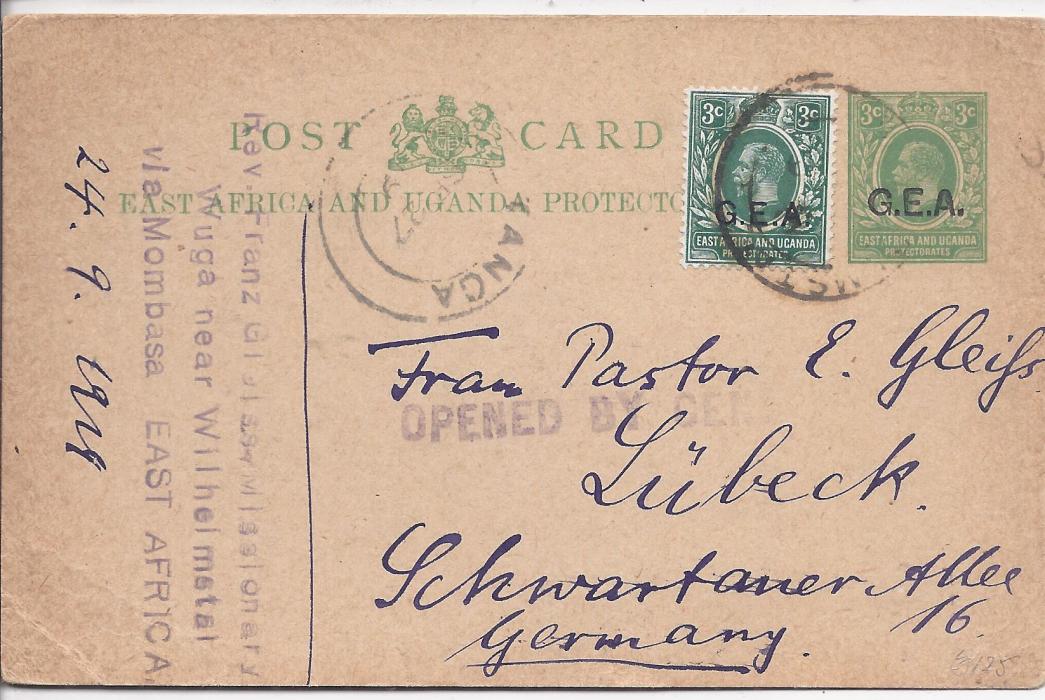 POST CARD
EAST AFRICA AND UGANDA PROTECTO
3c 3c
G.E.A.
EAST AFRICA AND UGANDA
PROTECTORATES
3c 3c
G.E.A.
EAST AFRICA AND UGANDA
PROTECTORATES
TANGA
Frau Pastor E. Gleiß
OPENED BY CEN
Lübeck.
Schwartauer Allee
16.
Germany.
Rev. Franz Gleiss, Missionary
Wuga near Wilhelmstal
via Mombasa EAST AFRICA
24. 9.